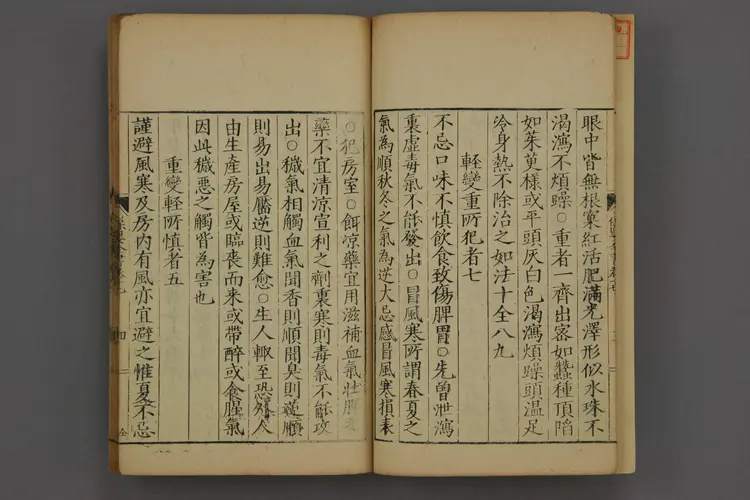 眼中皆無根窠紅活肥滿光澤形似水珠不
渴瀉不煩躁○重者一齊出密如蠶種頂陷
如茱萸樣或平頭灰白色渴瀉煩躁頭温足
冷身熱不除治之如法十全八九
輕變重所犯者七
不忌口味不慎飲食致傷脾胃○先曾泄瀉
裏虛毒氣不能發出○冒風寒所謂春夏之
氣為順秋冬之氣為逆大忌感冒風寒損表
○犯房室○餌凉藥宜用滋補血氣壯脾之
藥不宜清涼宣利之劑裏寒則毒氣不能攻
出○穢氣相觸血氣聞香則順聞臭則逆順
則易出易靨逆則難愈○生人輙至恐外人
由生產房屋或臨喪而来或帶醉或食腥氣
因此穢惡之觸皆為害也
重變輕所慎者五
謹避風寒及房内有風亦宜避之惟夏不忌